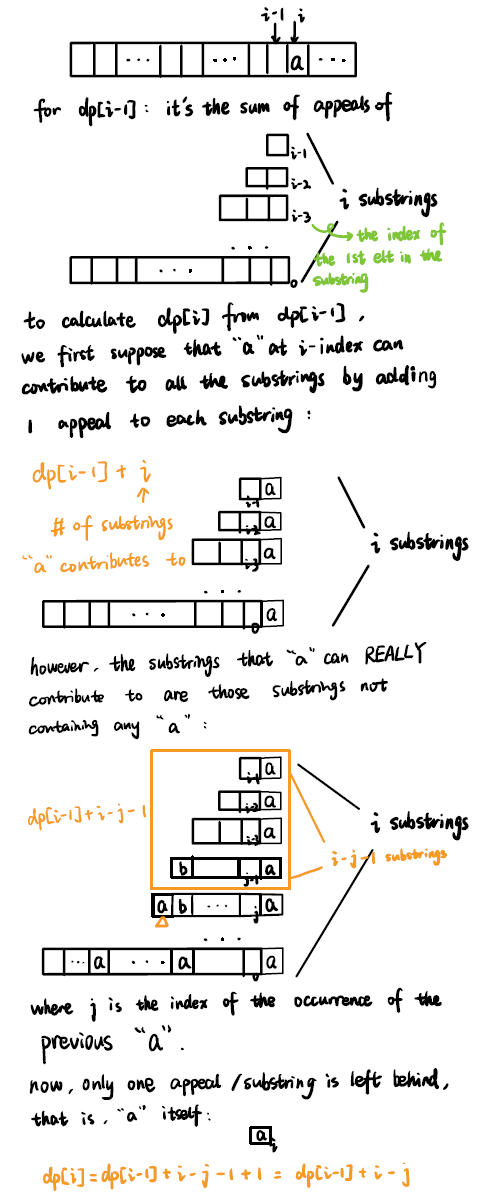 i-1 i
... ... a ...
for dp[i-1]: it's the sum of appeals of
i-1
i-2
i-3
i substrings
the index of
the 1st elt in the
substring
...
... 0
to calculate dp[i] from dp[i-1],
we first suppose that "a" at i-index can
contribute to all the substrings by adding
1 appeal to each substring:
dp[i-1] + i
# of substrings
"a" contributes to
i-1 a
i-2 a
i-3 a
i substrings
...
... 0 a
however, the substrings that "a" can REALLY
contribute to are those substrings not
containing any "a":
dp[i-1]+i-j-1
i-1 a
i-2 a
i-3 a
b j-1 a
i substrings
i-j-1 substrings
a b ... j a
...
... a ... a a
where j is the index of the occurrence of the
previous "a".
now, only one appeal/substring is left behind,
that is, "a" itself:
a i
dp[i]=dp[i-1]+i-j-1+1 = dp[i-1]+i-j